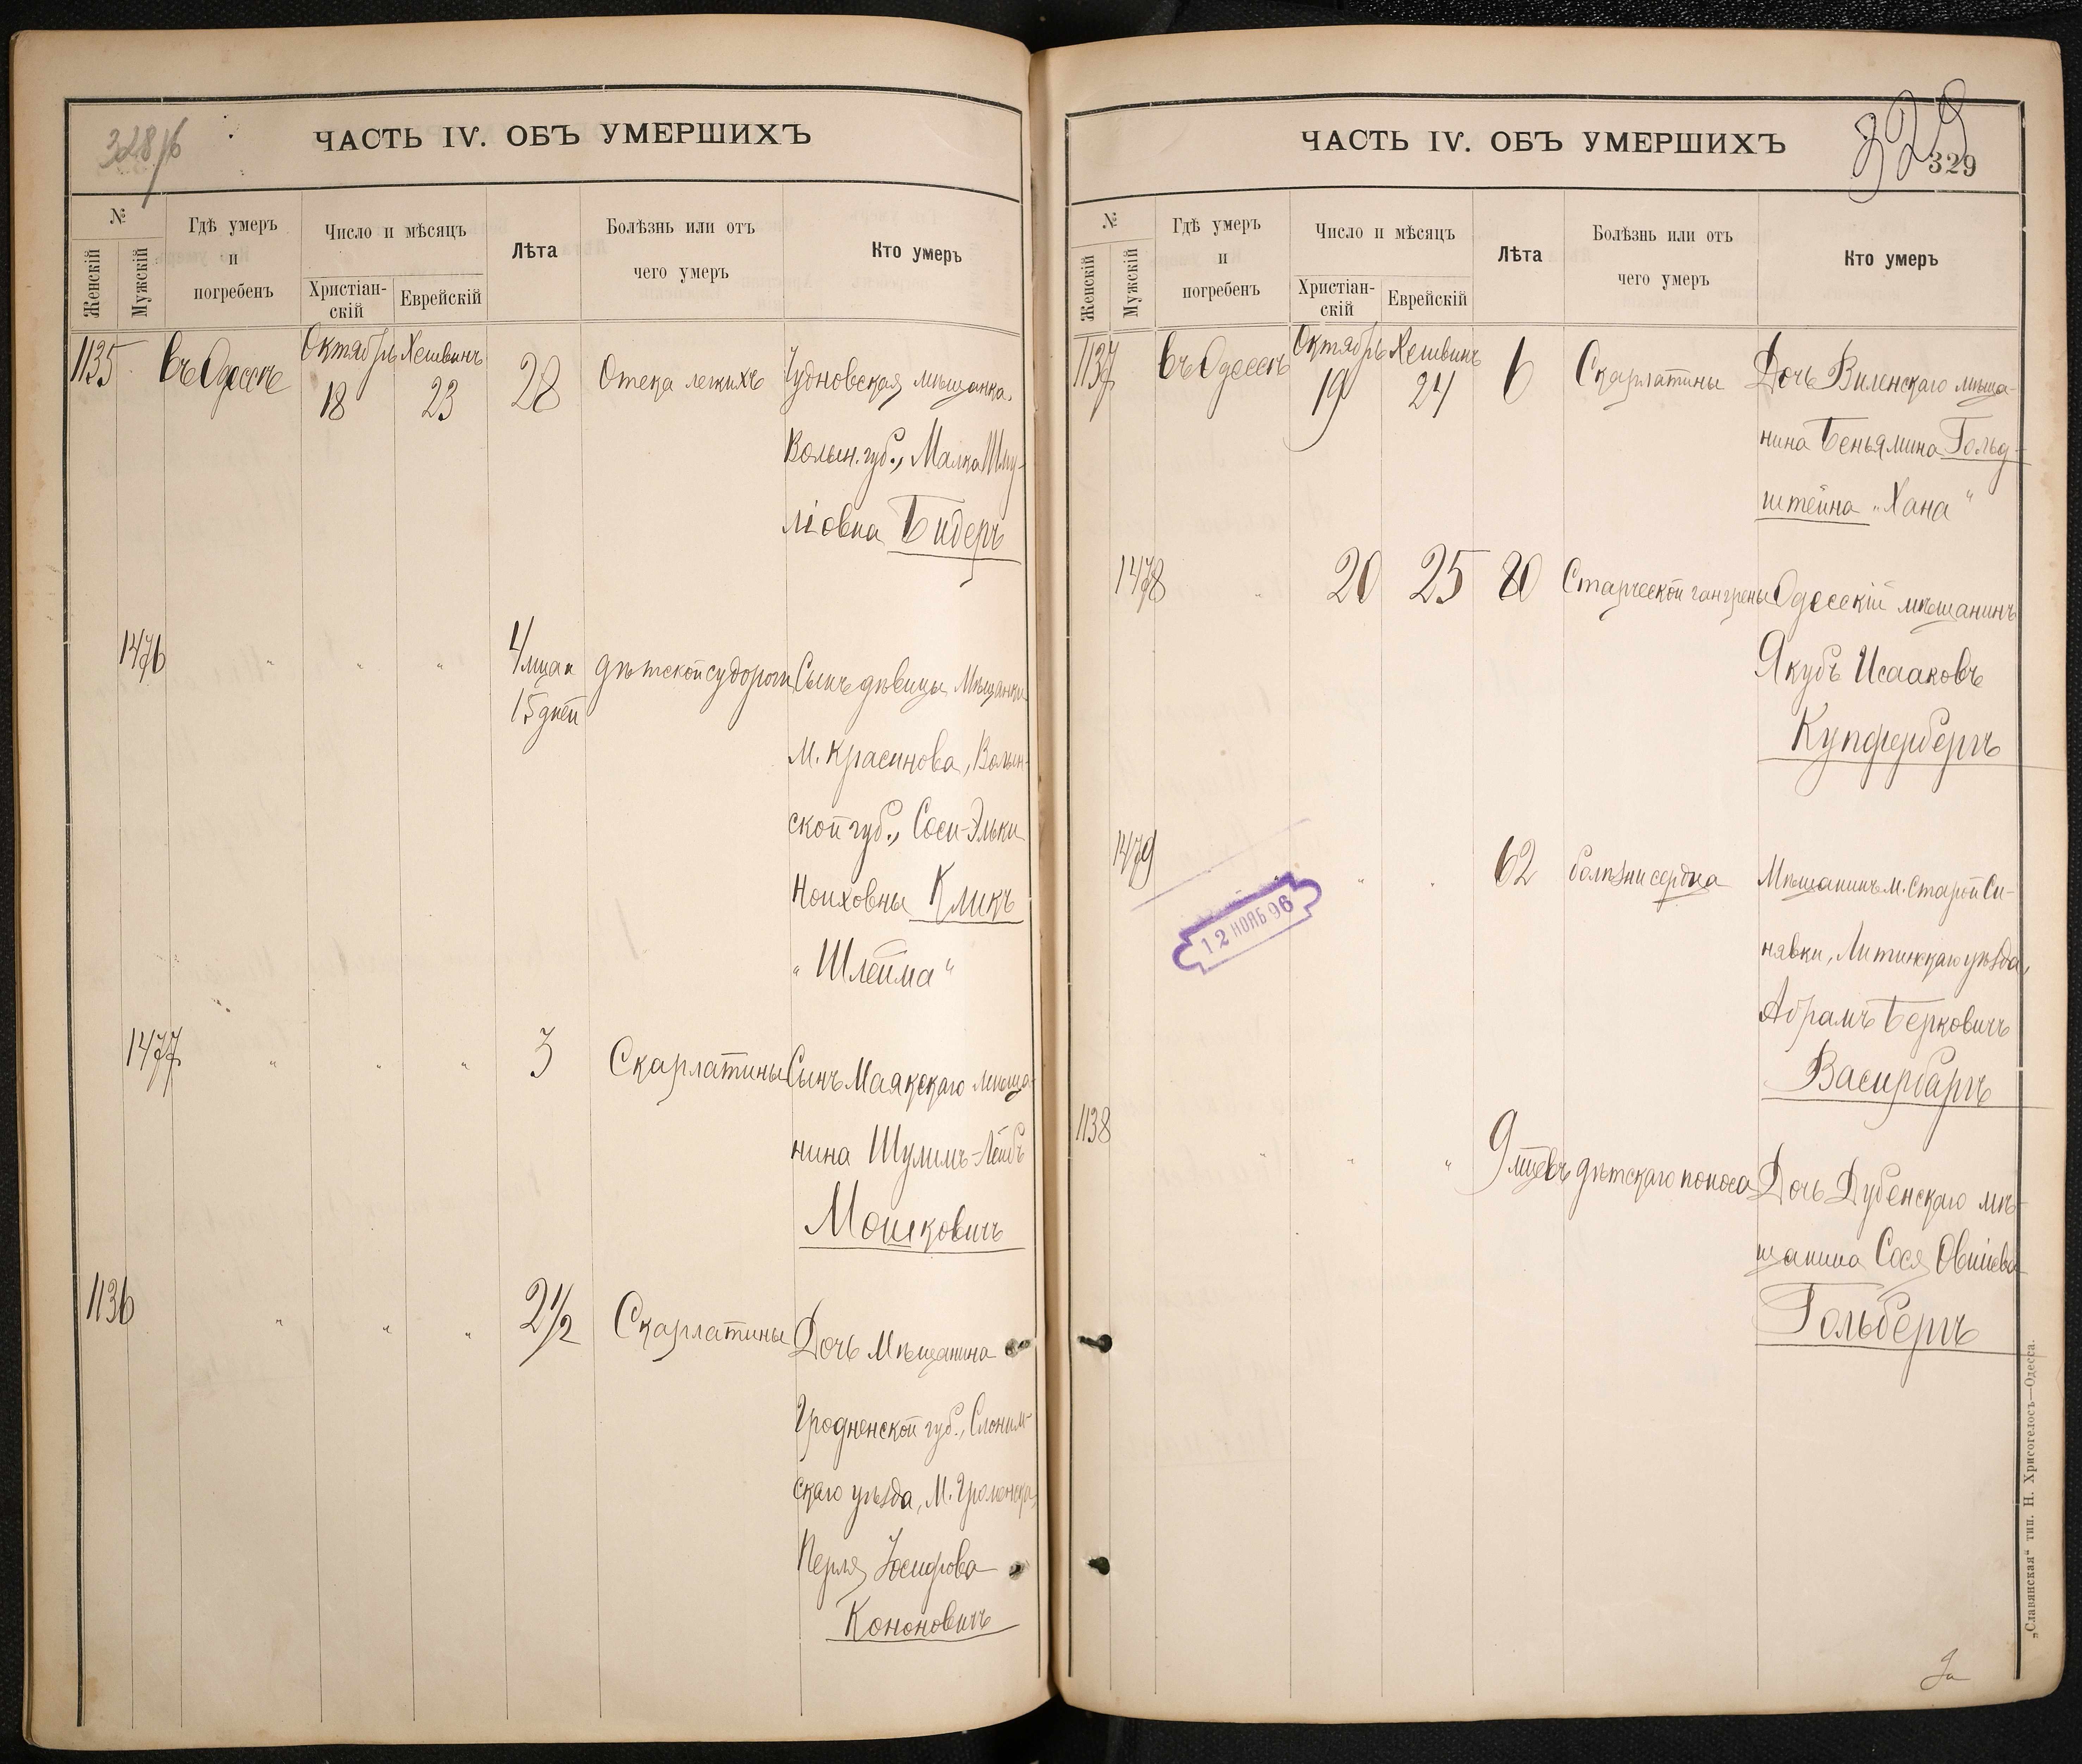 328/б
ЧАСТЬ IV. ОБЪ УМЕРШИХЪ
№
Женскій
Мужскій
Гдѣ умеръ
и
погребенъ
Число и мѣсяцъ
Христіан-
скій
Еврейскій
Лѣта
Болѣзнь или отъ
чего умеръ
Кто умеръ
1135 въ Одессѣ Октябрь 18 Хешвинъ 23 28 Отека легкихъ Чудновская мѣщанка,
Волын. губ., Малка Шму-
ліовна Бидеръ
1476 " " " 4 мца и 15 дней дѣтской судороги Сынъ дѣвицы Мѣщанки
м. Красинова, Волын-
ской губ., Соси-Эльки
Ноиховны Кликъ
„Шлейма“
1477 " " " 3 Скарлатины Сынъ Маякскаго мѣща-
нина Шулимъ-Лейбъ
Мошковичъ
1136 " " " 2 1/2 Скарлатины Дочь Мѣщанина
Гродненской губ., Слоним-
скаго уѣзда, М.
Перля Іосифова
Кононовичъ
ЧАСТЬ IV. ОБЪ УМЕРШИХЪ
329
329
№
Женскій
Мужскій
Гдѣ умеръ
и
погребенъ
Число и мѣсяцъ
Христіан-
скій
Еврейскій
Лѣта
Болѣзнь или отъ
чего умеръ
Кто умеръ
1137 въ Одессѣ Октябрь 19 Хешвинъ 24 6 Скарлатины Дочь Виленскаго мѣща-
нина Беньямина Гольд-
штейна „Хана“
1478 " 20 25 80 Старческой гангрены Одесскій мѣщанинъ
Якубъ Исааковъ
Купфербергъ
1479 " " " 62 болѣзни сердца Мѣщанинъ м. Старой Си-
нявки, Литинскаго уѣзда,
Абрамъ Берковичъ
Васирбаргъ
12 НОЯБ 96
1138 " " " 9 мцевъ дѣтскаго поноса Дочь Дубенскаго мѣ-
щанина Сося Овшіева
Гольбергъ
„Славянская“ тип. Н. Хрисогелосъ—Одесса.